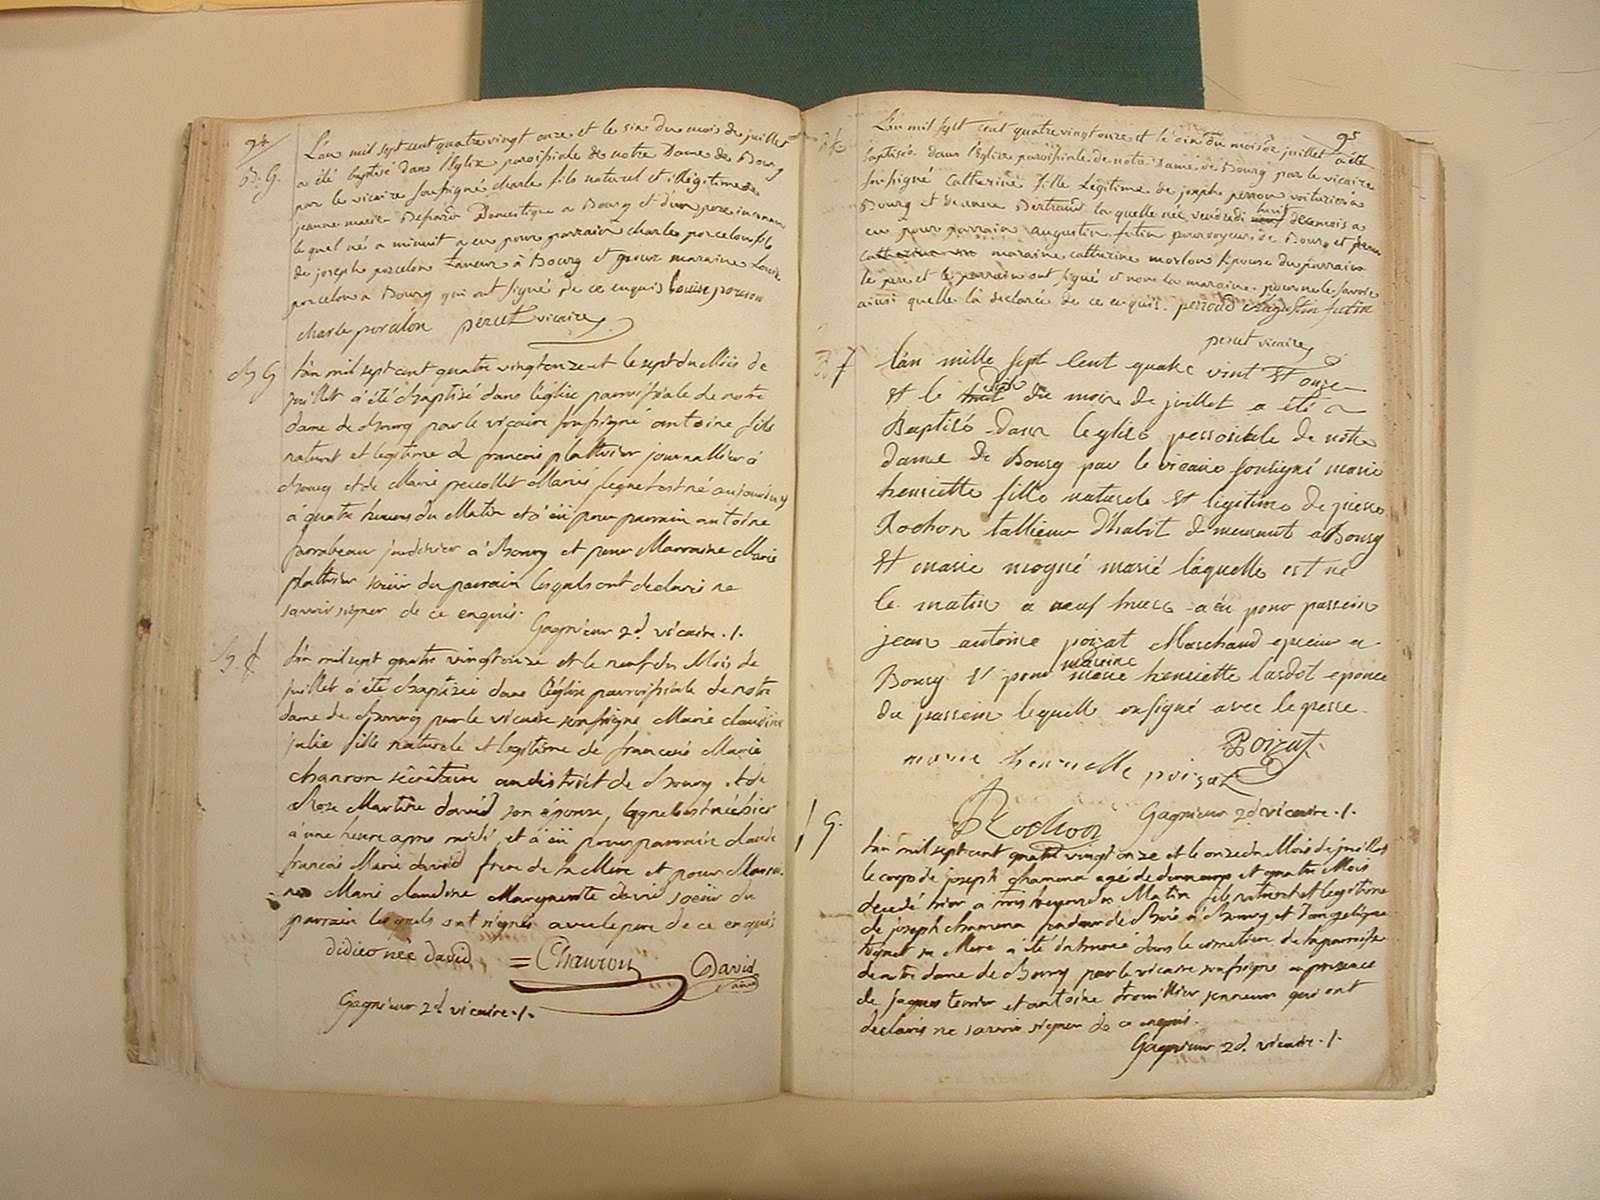 94
B. G.
L'an mil sept cent quatre vingt onze et le six du mois de juillet
a été baptisé dans l'Eglise paroissiale de notre Dame de Bourg
par le vicaire soussigné charle fils naturel et illégitime de
jeanne marie Domestique a Bourg et d'un pere inconnu
le quel né a minuit a eu pour parrain charle porcelon fils
de joseph porcelon Taneur à Bourg et pour maraine Louise
porcelon a Bourg qui ont signé de ce enquis Louise
charle porcelon perret vicaire
b G
L'an mil sept cent quatre vingt onze et le sept du Mois de
juillet à été baptisé dans l'église parroissiale de notre
dame de bourg par le vicaire soussigné antoine fils
naturel et legitime de francois plattivier journallier à
bourg et de Marie Mariés lequel est né aujourduy
à quatre heures du Matin et à eü pour parrain antoine
jardinier à bourg et pour Marraine Marie
plattivier soeür du parrain lesquels ont declarés ne
savoir signer de ce enquis.
Gagnieur 2d. vicaire ./.
b. f
L'an mil sept quatre vingt onze et le neuf du Mois de
juillet à été baptisée dans l'église parroissiale de notre
dame de bourg par le vicaire soussigné Marie claudine
julie fille naturele et legitime de francois Marie
chauron sécrétaire au district de bourg et de
Rose Martine david son épouse, laquelle est née hier
à une heure apres midi, et à eü pour parrain claude
francois Marie david frere de la Mere et pour Marrai-
ne Marie claudine Marguerite david soeür du
parrain lesquels ont signés avec le pere de ce enquis
didier née david = Chauron David
Gagnieur 2d vicaire ./.
95
L'an mil sept cent quatre vingt onze et le six du mois de juillet a été
baptisée dans l'Eglise paroissiale de notre Dame de Bourg par le vicaire
soussigné Catherine fille Légitime de joseph perrou voiturier à
Bourg et de anne Bertrand la quelle née vendredi huit de ce mois a
eu pour parrain augustin futin pourvoyeur de Bourg et pour
maraine catherine morlon Epouse du parrain
le pere et le parrain ont signé et non la maraine pour ne le savoir
ainsi quelle l'a declarée de ce enquis. perroud augustin futin
perret vicaire
B f
L'an mille sept Cent quatre vint Et onze
Et le dix du mois de juillet a été
Baptisé dans leglise de notre
dame de Bourg par le vicaire souligné marie
henriette fille naturele Et legitime de pierre
Rochon tallieur d'habit demeurant a Bourg
Et marie mogné marié laquelle est né
le matin a neuf heure a éu pour parrein
jean antoine poizat Marchand epicier a
Bourg Et pour mareine henriette lardot epouce
du parrein lequelle onsigné avec le perre.
Poizat
marie henriette poizat
Rochon
Gagnieur 2d vicaire ./.
G.
L'an mil sept cent quatre vingt onze et le onze du Mois de juillet
le corps de joseph chamena agé de deux ans et quatre Mois
decedé hier a trois heures du Matin fils naturel et legitime
de joseph chamena fendeur de Bois à Bourg et d'angelique
sa Mere à été inhumé dans le cimetiere de la parroisse
de notre dame de Bourg par le vicaire soussigné en presence
de jaques terrier et antoine qui ont
declarés ne savoir signer de ce enquis.
Gagnieur 2d. vicaire ./.